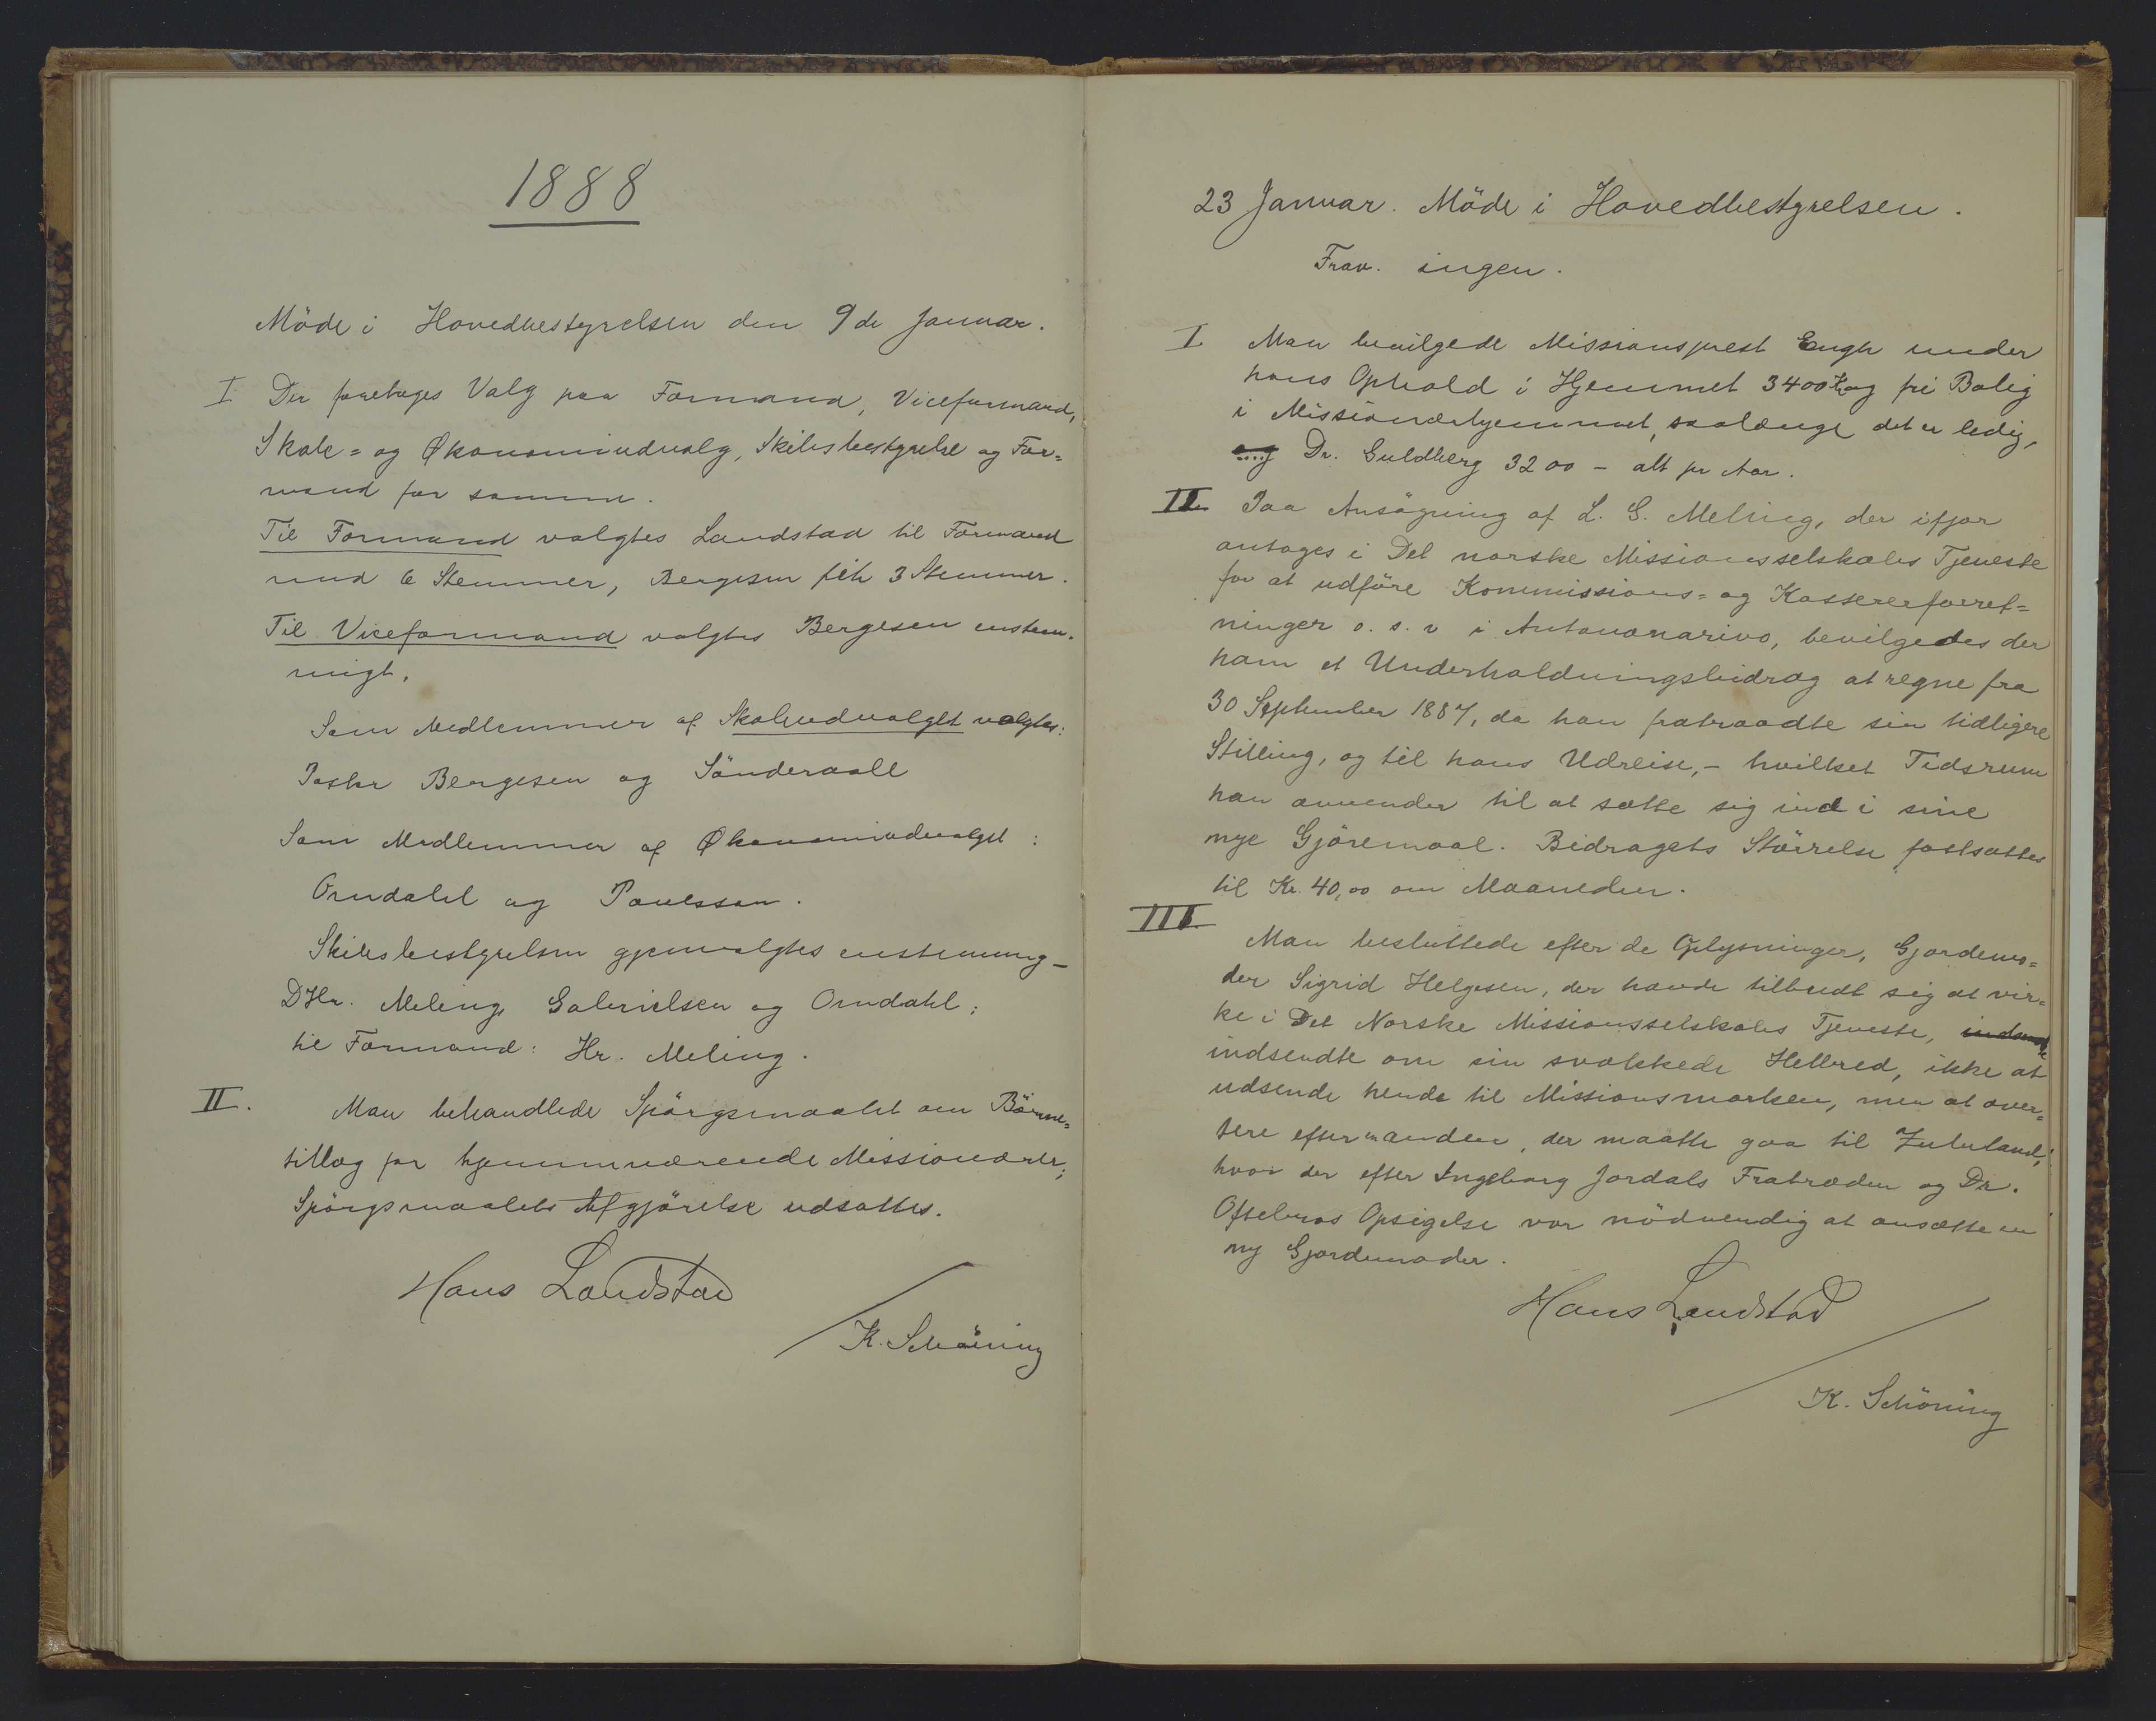 1888
Möde i Hovedbestyrelsen den 9de Januar.
I Der foretages Valg paa Formand, Viceformand,
Skole= og Økonomiudvalg, Skibsbestyrelse og For=
mand for samme.
Til Formand valgtes Landstad til Formand
med 6 Stemmer, Bergesen fik 3 Stemmer.
Til Viceformand valgtes Bergesen enstem.
migt.
Som Medlemmer af Skoleudvalget valgtes:
Pastor Bergesen og Sönderaall
Som Medlemmer af Økonomiudvalget:
Omdahl og Poulsson.
Skibsbestyrelsen gjenvalgtes enstemmig –
DHr. Meling, Gabrielsen og Omdahl;
til Formand: Hr. Meling.
II. Man behandlede Spörgsmaalet om Börne=
tillæg for hjemmeværende Missionærer;
Spörgsmaalets Afgjörelse udsattes.
Hans Landstad
K. Schöning
23 Januar. Möde i Hovedbestyrelsen.
Frav. ingen.
I Man bevilgede Missionsprest Engh under
hans Ophold i Hjemmet 3400 Kr og fri Bolig
i Missionærhjemmet, saalænge det er ledig,
og Dr. Guldberg 3200 – alt pr Aar.
II. Paa Ansögning af L. G. Meling, der ifjor
antoges i Det norske Missionsselskabs Tjeneste
for at udföre Kommissions= og Kassererforret=
ninger o. s. v i Antananarivo, bevilgedes der
ham et Underholdningsbidrag at regne fra
30 September 1887, da han fratraadte sin tidligere
Stilling, og til hans Udreise, – hvilket Tidsrum
han anvender til at sætte sig ind i sine
nye Gjöremaal. Bidragets Störrelse fastsattes
til Kr. 40,00 om Maaneden.
III. Man besluttede efter de Oplysninger, Gjordemo=
der Sigrid Helgesen, der havde tilbudt sig at vir=
ke i Det Norske Missionsselskabs Tjeneste,
indsendte om sin svækkede Helbred, ikke at
udsende hende til Missionsmarken, men at aver=
tere efter en anden, der maatte gaa til Zululand,
hvor der efter Ingeborg Jordals Fratræden og Dr.
Oftebros Opsigelse var nödvendig at ansætte en
ny Gjordemoder.
Hans Landstad
K. Schöning